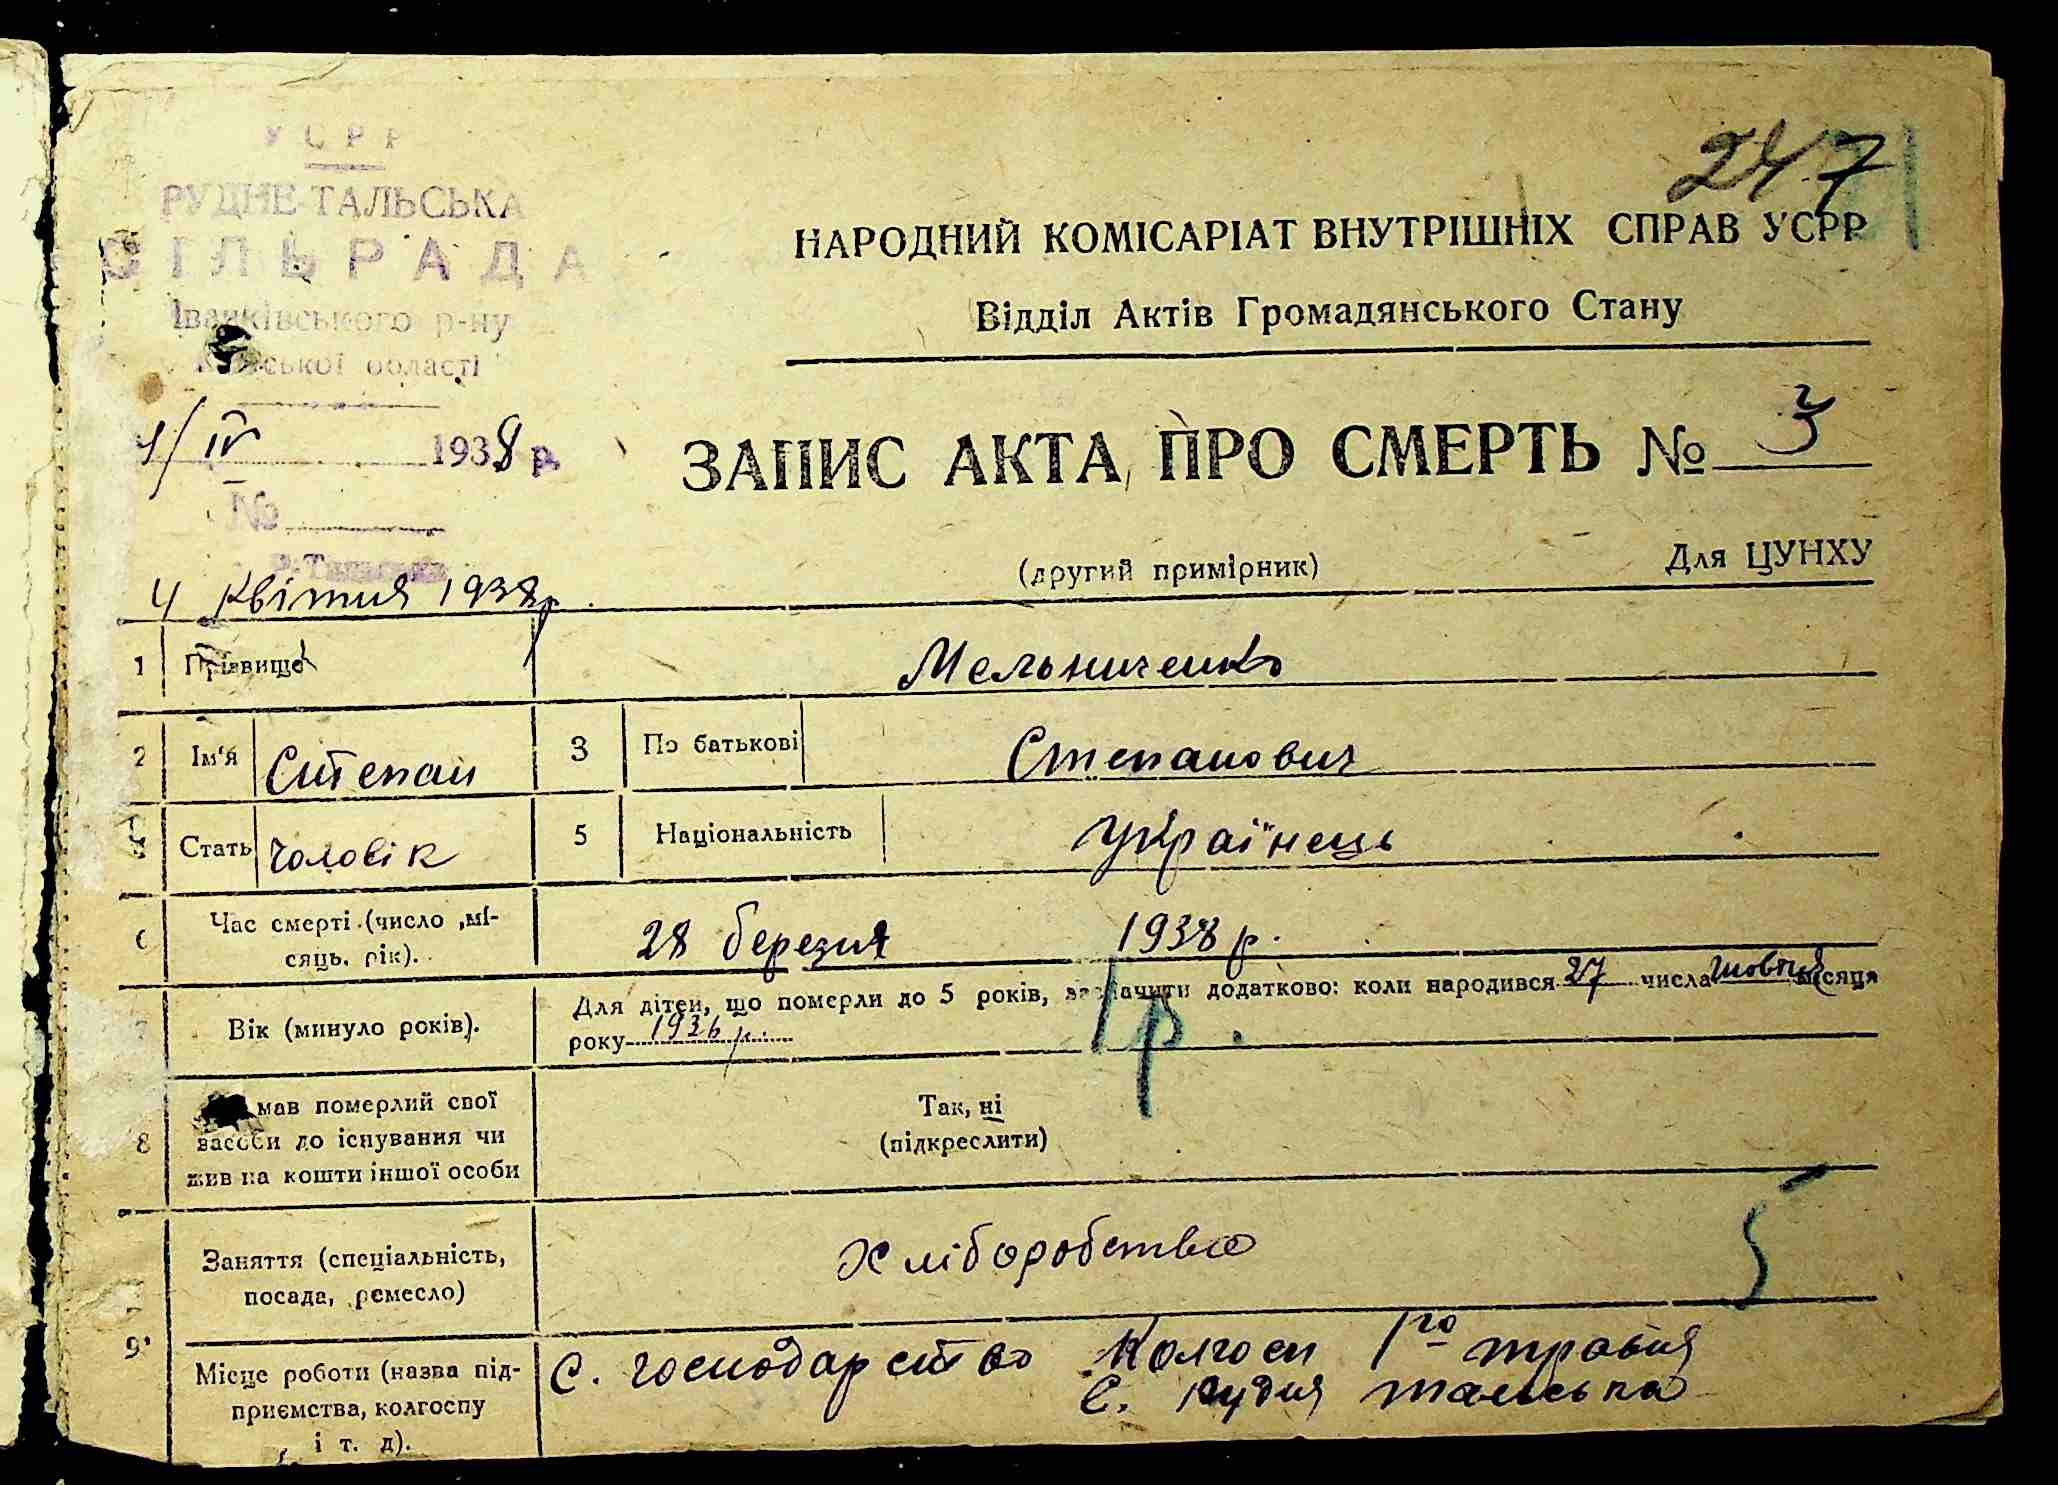 247
УСРР
РУДНЕ-ТАЛЬСЬКА
СІЛЬРАДА
Іванківського р-ну
Київської області
1/IV 1938 р.
№
Р-Тальська
НАРОДНИЙ КОМІСАРІАТ ВНУТРІШНІХ СПРАВ УСРР
Відділ Актів Громадянського Стану
ЗАПИС АКТА ПРО СМЕРТЬ № 3
(другий примірник) Для ЦУНХУ
4 Квітня 1938 р.
1 Прізвище Мельниченко
2 Ім'я Степан 3 По батькові Степанович
4 Стать чоловік 5 Національність Українець
6 Час смерті (число, мі-
сяць, рік). 28 березня 1938 р.
7 Вік (минуло років). Для дітей, що померли до 5 років, зазначити додатково: коли народився 27 числа жовтня місяця
року 1936 р. 1 р.
8 мав померлий свої
засоби до існування чи
жив на кошти іншої особи
Так, ні
(підкреслити)
9 Заняття (спеціальність,
посада, ремесло) Хліборобство 5
Місце роботи (назва під-
приємства, колгоспу
і т. д).
С. господарство Колгосп 1го травня
С. Рудня тальська